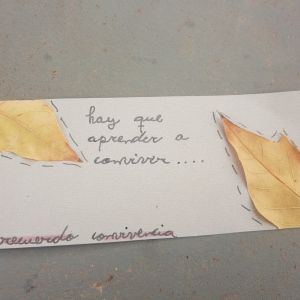 hay que
aprender a
convivir....
recuerdo convivencia